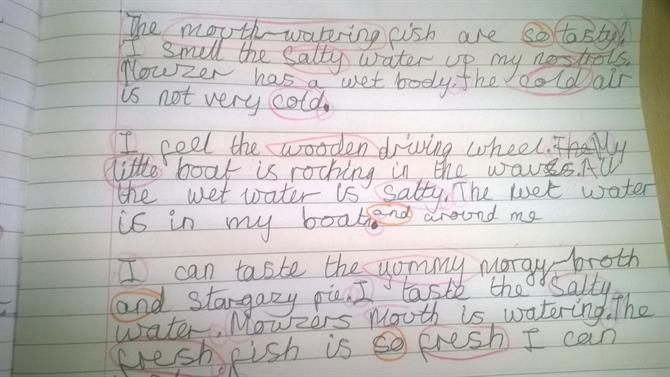 The mouth-watering fish are so tasty!
I smell the Salty water up my nostrils.
Mowzer has a wet body. The cold air
is not very cold.
I feel the wooden driving wheel. My
little boat is rocking in the waves. All
the wet water is salty. The wet water
is in my boat. and around me
I can taste the yommy morgy-broth
and Stargazy pie. I taste the Salty
water. Mowzers Mouth is watering. The
fresh fish is so fresh I can